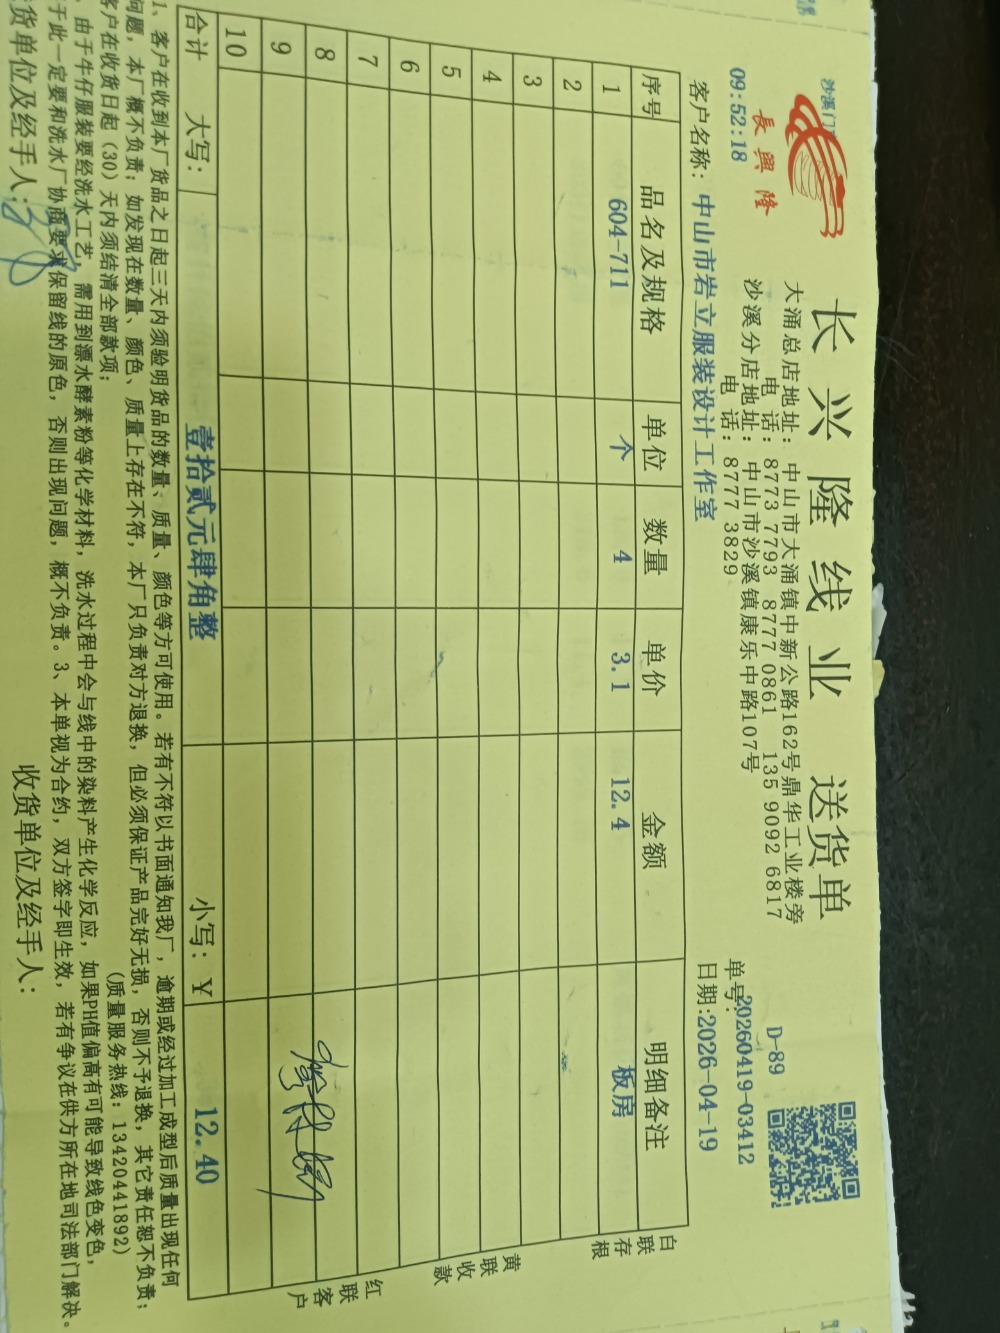 沙溪门
09:52:18
長興隆
长兴隆线业 送货单
大涌总店地址：中山市大涌镇中新公路162号鼎华工业楼旁
电 话：8773 7793 8777 0861 135 9092 6817
沙溪分店地址：中山市沙溪镇康乐中路107号
电 话：8777 3829
D-89
单号：20260419-03412
客户名称：中山市岩立服装设计工作室
日期：2026-04-19
序号 品名及规格 单位 数量 单价 金额 明细备注
1 604-711 个 4 3.1 12.4 板房
2
3
4
5
6
7
8
9
10
合计 大写： 壹拾贰元肆角整 小写：￥ 12.40
白联存根
黄联收款
红联客户
1、客户在收到本厂货品之日起三天内须验明货品的数量、质量、颜色等方可使用。若有不符以书面通知我厂，逾期或经过加工成型后质量出现任何
问题，本厂概不负责；如发现在数量、颜色、质量上存在不符，本厂只负责对方退换，但必须保证产品完好无损，否则不予退换，其它责任恕不负责；
客户在收货日起（30）天内须结清全部款项；
（质量服务热线：13420441892）
由于牛仔服装要经洗水工艺，需用到漂水酵素粉等化学材料，洗水过程中会与线中的染料产生化学反应，如果PH值偏高有可能导致线色变色，
于此一定要和洗水厂协商要求保留线的原色，否则出现问题，概不负责。3、本单视为合约，双方签字即生效，若有争议在供方所在地司法部门解决。
货单位及经手人：
收货单位及经手人：